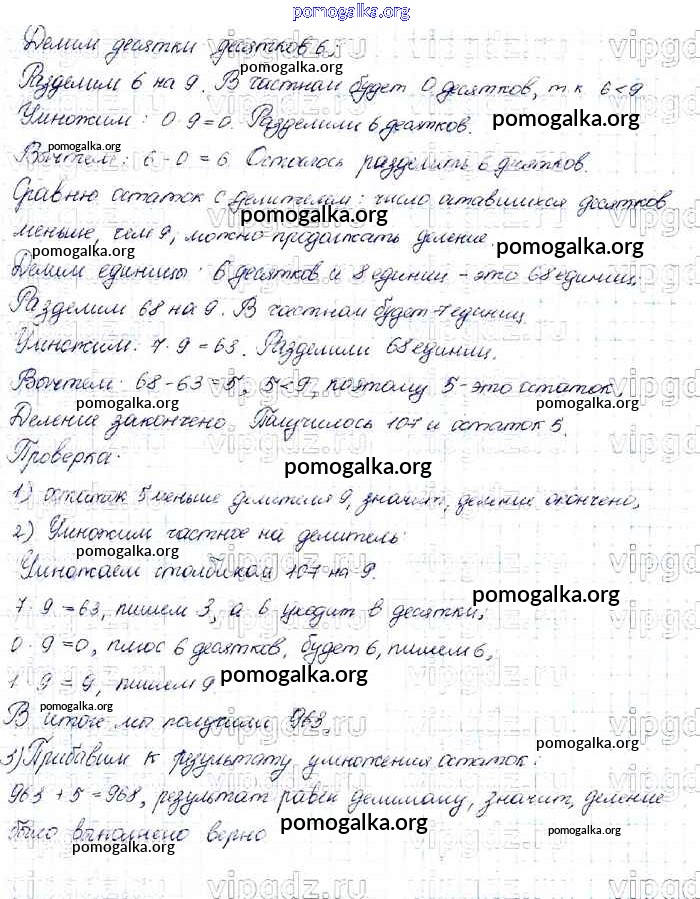 pomogalka.org
Делим десятки десятков 6,
pomogalka.org
Разделим 6 на 9. В частном будет 0 десятков, т к 6<9
pomogalka.org
Умножим: 0·9=0. Разделили 6 десятков.
pomogalka.org
Вычтем: 6-0=6. Осталось разделить 6 десятков.
Сравню остаток с делителем: число оставшихся десятков
pomogalka.org
меньше, чем 9, можно продолжать деление.
pomogalka.org
Делим единицы: 6 десятков и 8 единиц - это 68 единиц,
Разделим 68 на 9. В частном будет 7 единиц
Умножим: 7·9=63. Разделили 68 единиц.
Вычтем: 68-63=5, 5<9, поэтому 5-это остаток,
pomogalka.org pomogalka.org
Деление закончено. Получилось 107 и остаток 5.
Проверка:
pomogalka.org
1) остаток 5 меньше делителя 9, значит, деление окончено,
2) Умножим частное на делитель:
pomogalka.org
Умножаем столбиком 107 на 9.
pomogalka.org
7·9=63, пишем 3, а 6 уходит в десятки;
0·9=0, плюс 6 десятков, будет 6, пишем 6,
1·9=9, пишем 9
pomogalka.org
pomogalka.org
В итоге мы получили 963.
pomogalka.org
3) Прибавим к результату умножения остаток:
963+5=968, результат равен делимому, значит, деление
pomogalka.org
было выполнено верно
pomogalka.org pomogalka.org
vipgdz.ru